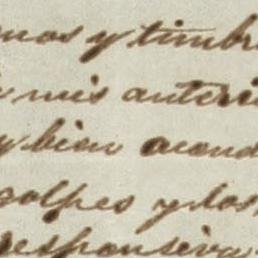 mos y timbr
mis anteri
y bien acond
golpes y los
responsiva